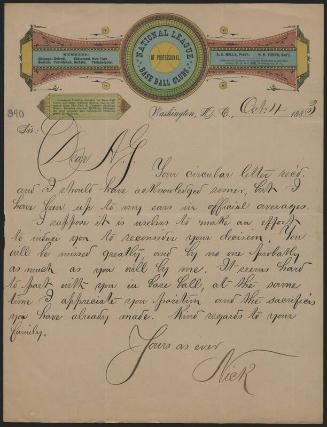 NATIONAL LEAGUE
OF PROFESSIONAL
BASE BALL CLUBS.
MEMBERS:
Chicago, Detroit, Cleveland, New York,
Boston, Providence, Buffalo, Philadelphia.
A. G. MILLS, Pres't. N. E. YOUNG, Sec'y.
390
Washington, D. C., Oct. 4 1883
Sir:
Dear A. G.
Your circular letter recd.
and I should have acknowledged sooner, but I
have been up to my ears in official averages.
I suppose it is useless to make an effort
to induce you to reconsider your decision. You
will be missed greatly and by no one probably
as much as you will by me. It seems hard
to part with you in base ball, at the same
time I appreciate your position and the sacrifices
you have already made. Kind regards to your
family.
Yours as ever
Nick